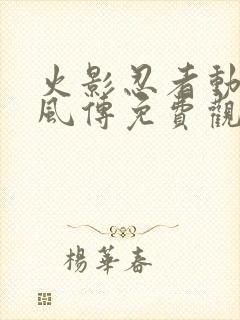 火影忍者動
風傳免費觀
楊華春